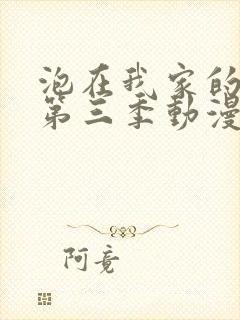 泡在我家的
第三季動漫
阿竟